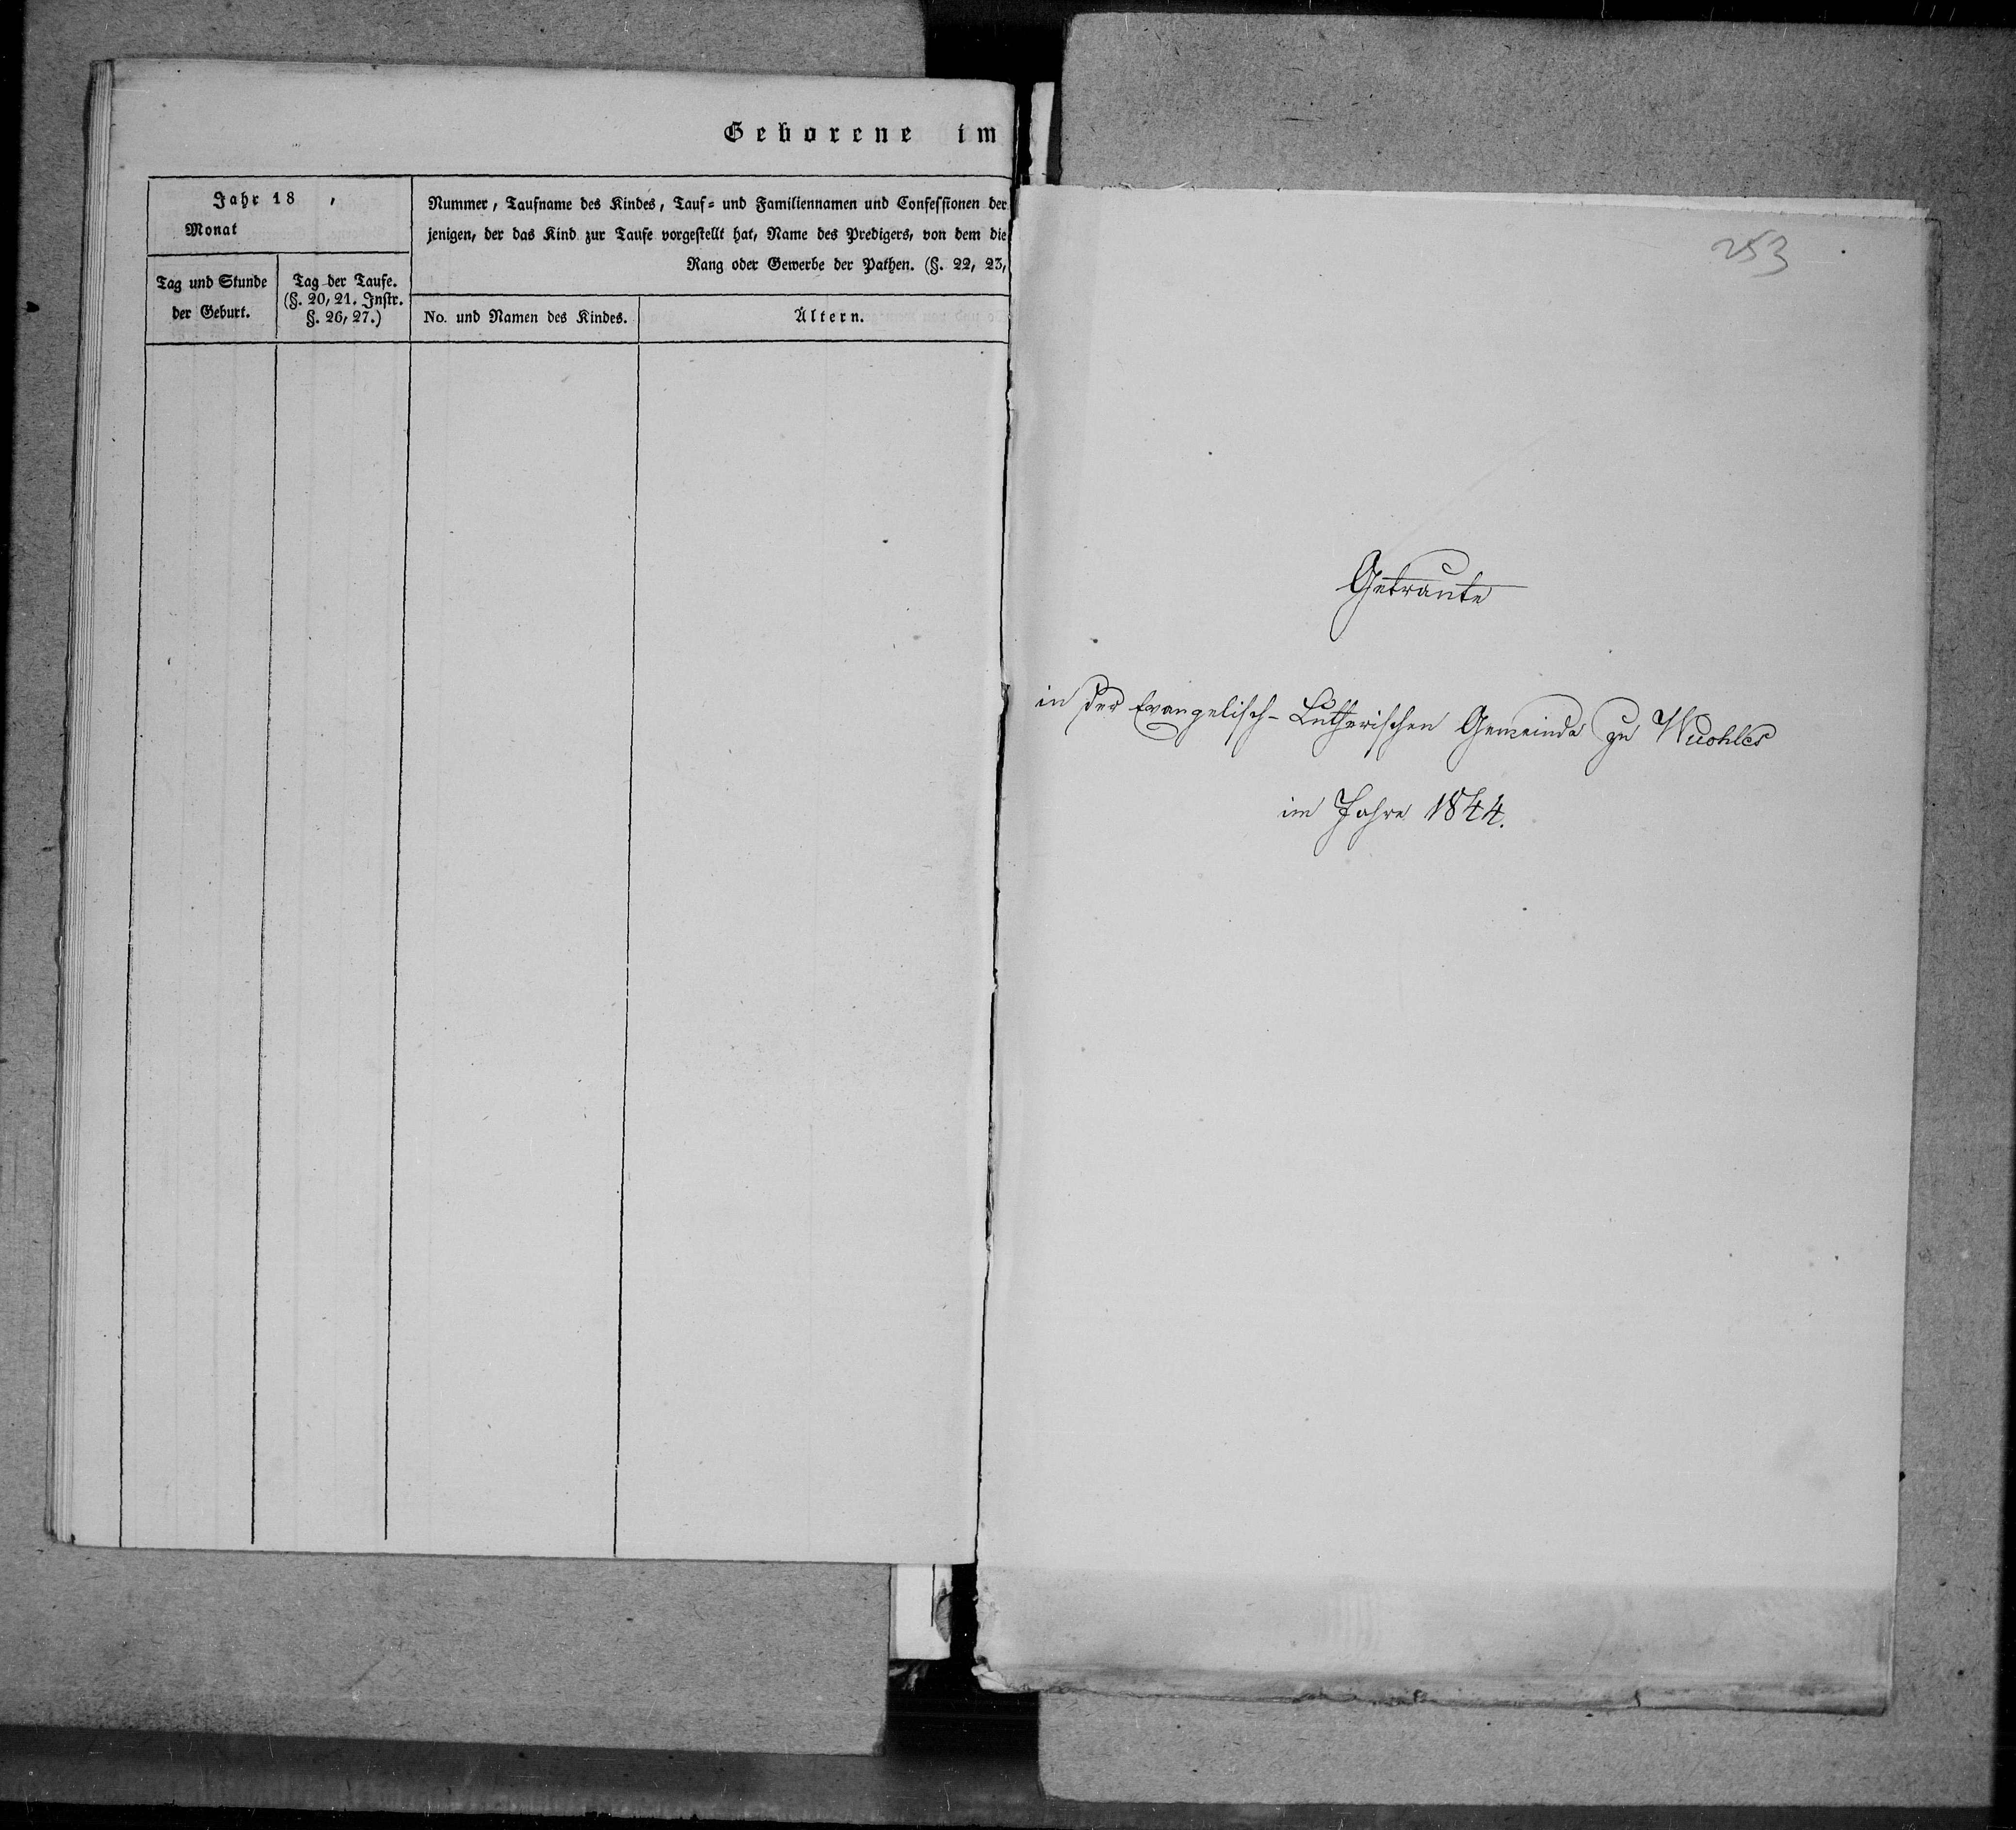 Geborene im
Jahr 18 ,
Monat
Nummer, Taufname des Kindes, Tauf- und Familiennamen und Confessionen der
jenigen, der das Kind zur Taufe vorgestellt hat, Name des Predigers, von dem die
Rang oder Gewerbe der Pathen. (§. 22, 23,
Tag und Stunde
der Geburt.
Tag der Taufe.
(§. 20, 21. Instr.
§. 26, 27.)
No. und Namen des Kindes.
Ältern.
253
Getraute
in der Evangelisch-Lutherischen Gemeinde zu
im Jahre 1844.